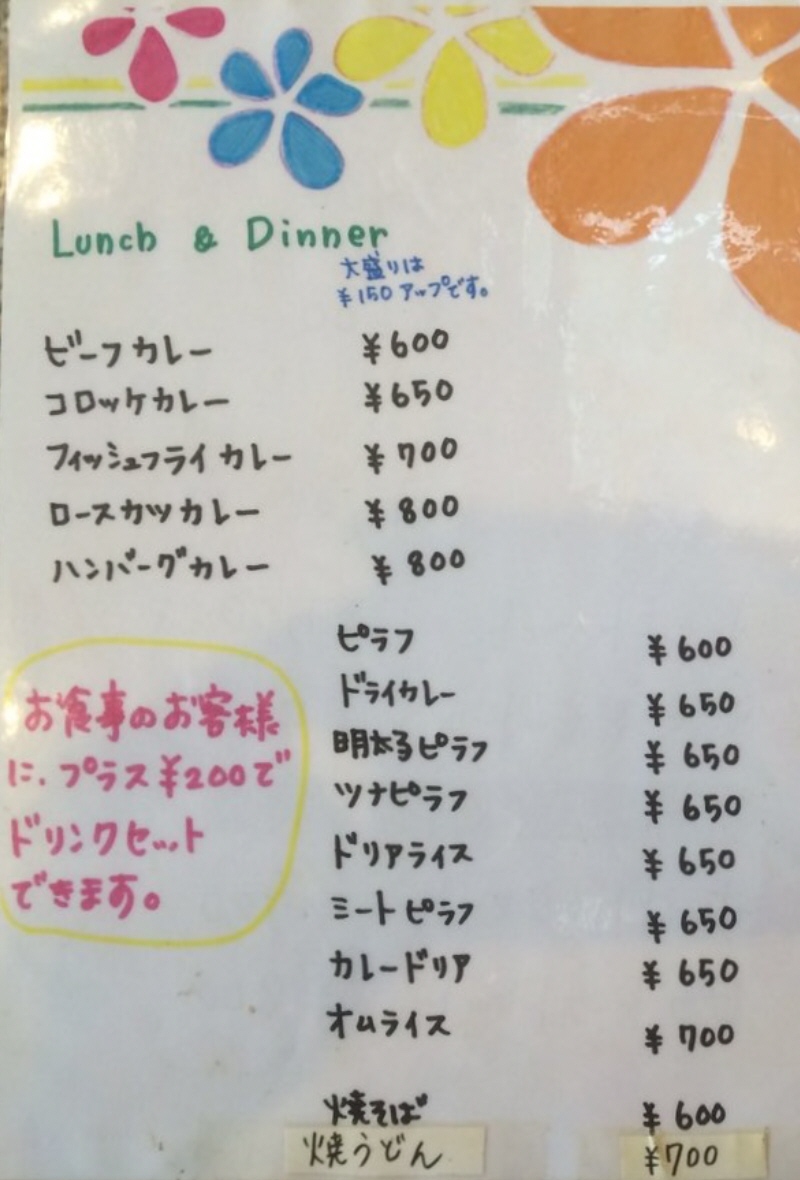 Lunch & Dinner
大盛りは
¥150 アップです。
ビーフカレー ¥600
コロッケカレー ¥650
フィッシュフライカレー ¥700
ロースカツカレー ¥800
ハンバーグカレー ¥800
ピラフ ¥600
ドライカレー ¥650
明太子ピラフ ¥650
ツナピラフ ¥650
ドリアライス ¥650
ミートピラフ ¥650
カレードリア ¥650
オムライス ¥700
焼そば ¥600
焼うどん ¥700
お食事のお客様
に、プラス¥200で
ドリンクセット
できます。